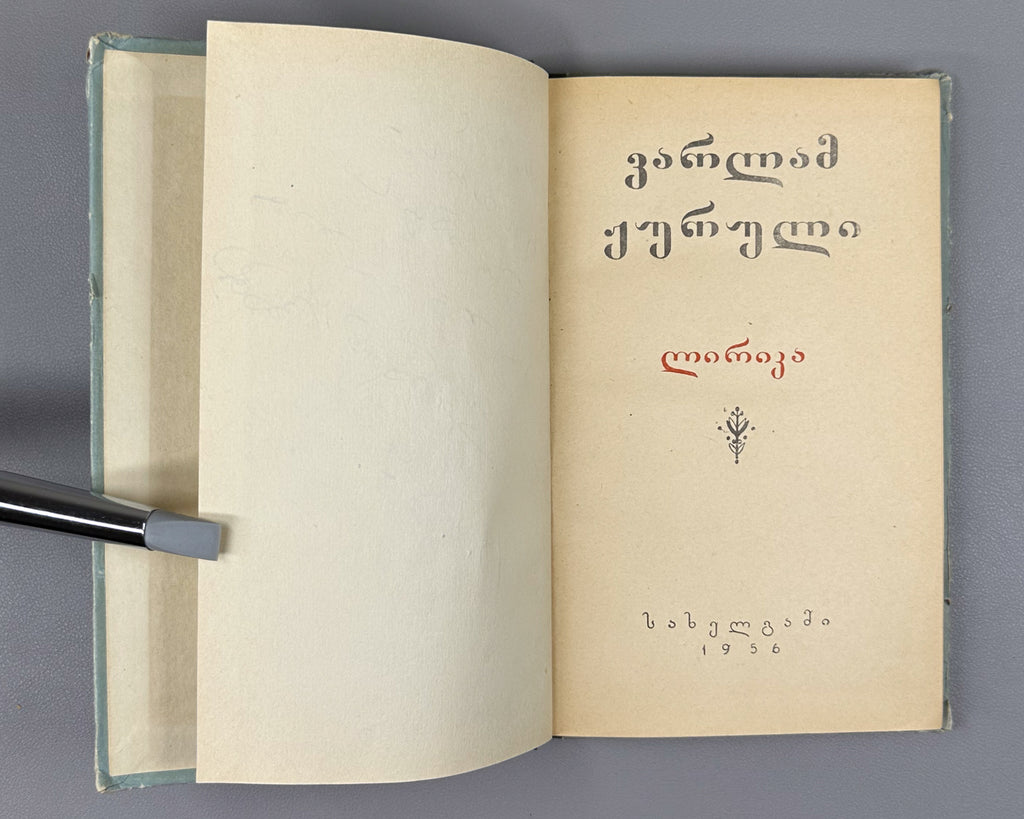 ვარლამ
ჟურული
ლირიკა
სახელგამი
1956